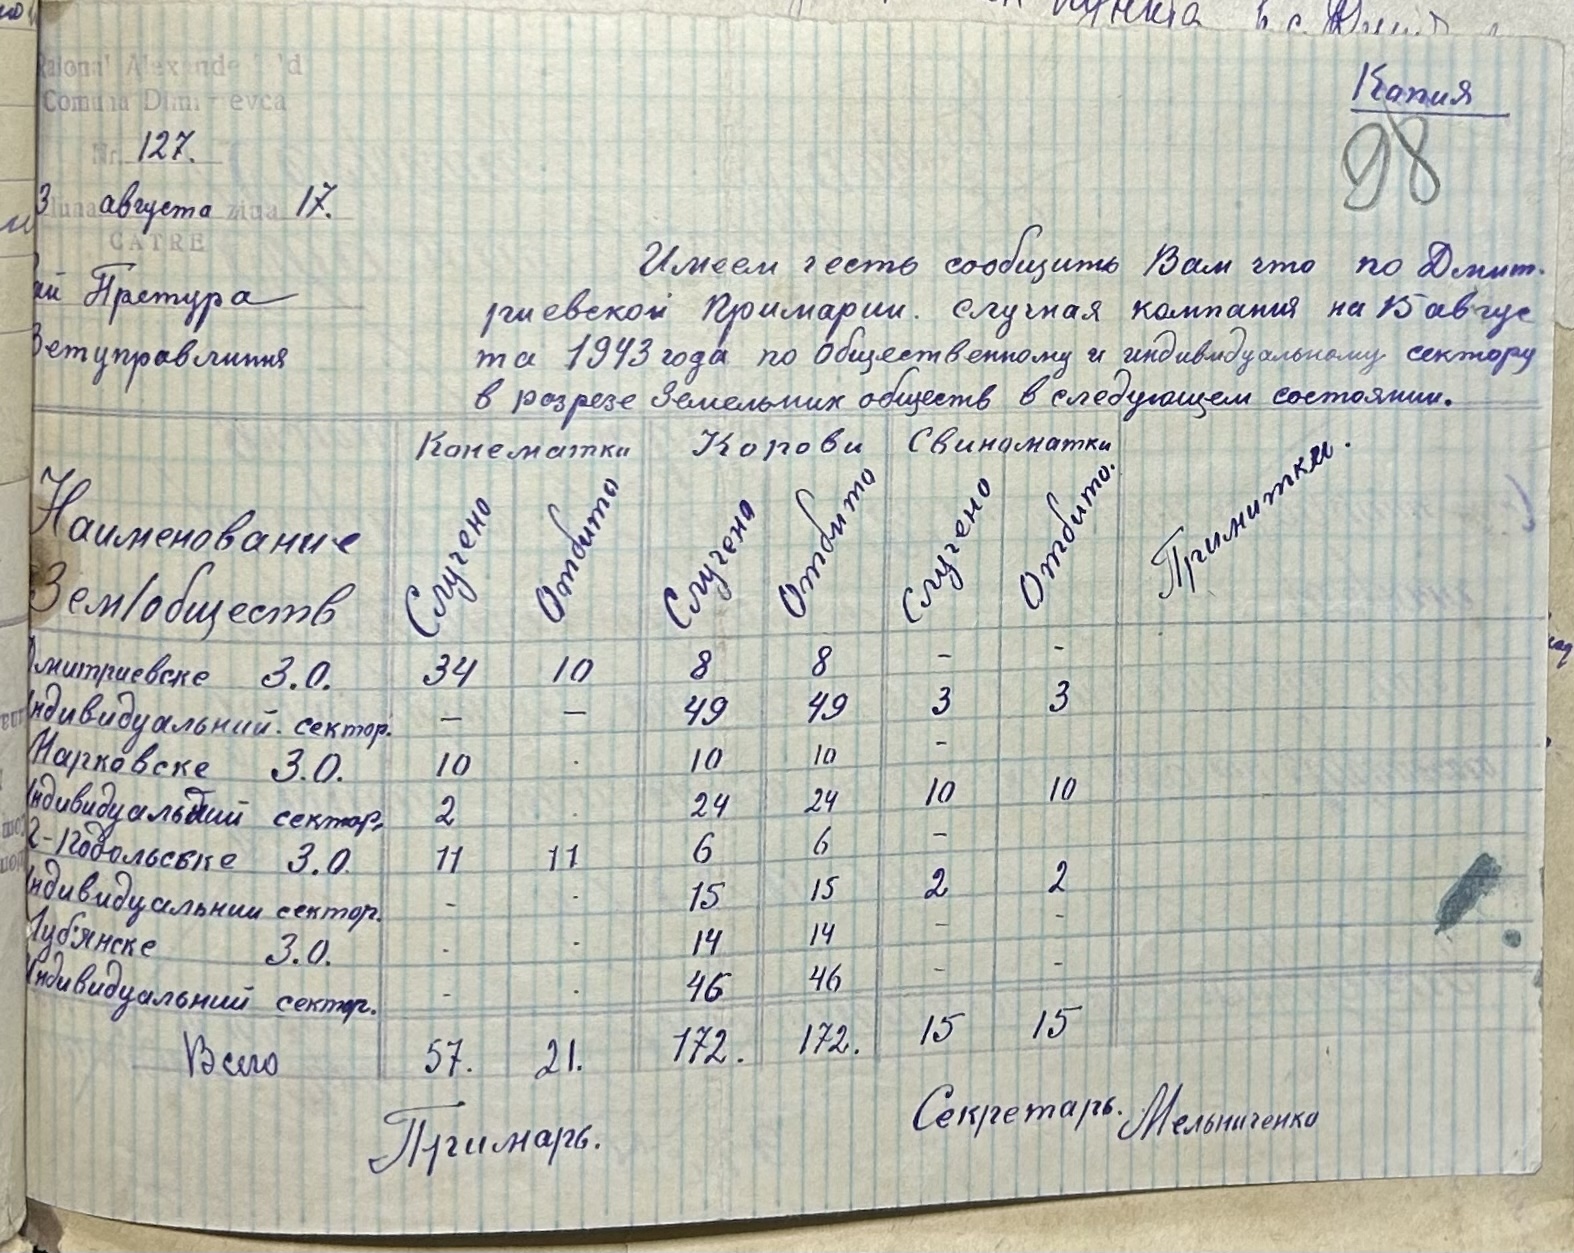 Копия
98
Raional Alexande ld
Comuna Dimi evca
Nr. 127.
3 luna августа ziua 17.
CATRE
ай Претура
Ветуправлиння
Имеем честь сообщить Вам что по Дмит-
риевской Примарии. случная компания на 15 авгус
та 1943 года по общественному и индивидуальному сектору
в розрезе Земельних обществ в следующем состоянии.
Наименование Зем/обществ Конематки Корови Свиноматки Примитки.
Случено Отбито Случена Отбито Случено Отбито.
Дмитриевске З.О. 34 10 8 8 - -
Индивидуальний. сектор. - - 49 49 3 3
Марковске З.О. 10 . 10 10 -
Индивидуальний сектор. 2 . 24 24 10 10
2-Подольске З.О. 11 11 6 6 -
Индивидуальний сектор. - . 15 15 2 2
Луб'янске З.О. - - 14 14 - -
Индивидуальний сектор. - . 46 46 - -
Всего 57. 21. 172. 172. 15 15
Примарь. Секретарь. Мельниченко